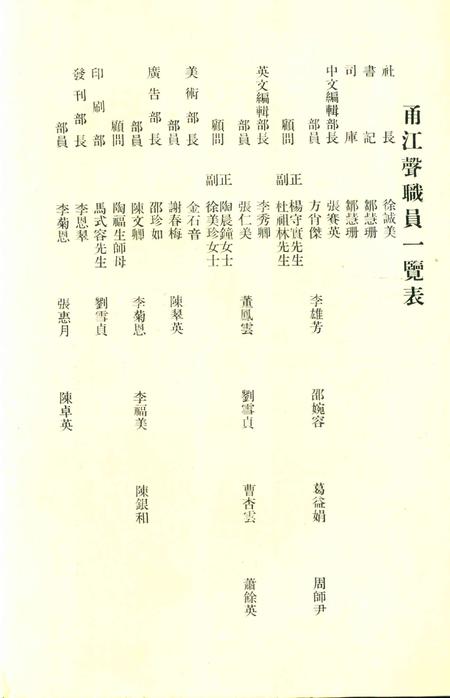 甬江聲職員一覽表
社長 徐誠美
書記 鄒慧珊
司庫 鄒慧珊
中文編輯部長 張賽英
部員 方宵傑 李雄芳 邵婉容 葛益娟 周師尹
顧問 正 楊守實先生
副 杜祖林先生
英文編輯部長 李秀卿
部員 張仁美 董鳳雲 劉雪貞 曹杏雲 蕭餘英
顧問 正 陶晨鐘女士
副 徐美珍女士
美術部長 金石音
部員 謝春梅 陳翠英
廣告部長 邵珍如
部員 陳文卿 李菊恩 李福美 陳銀和
顧問 陶福生師母
印刷部 馬式容先生 劉雪貞
發刊部長 李恩翠
部員 李菊恩 張惠月 陳卓英